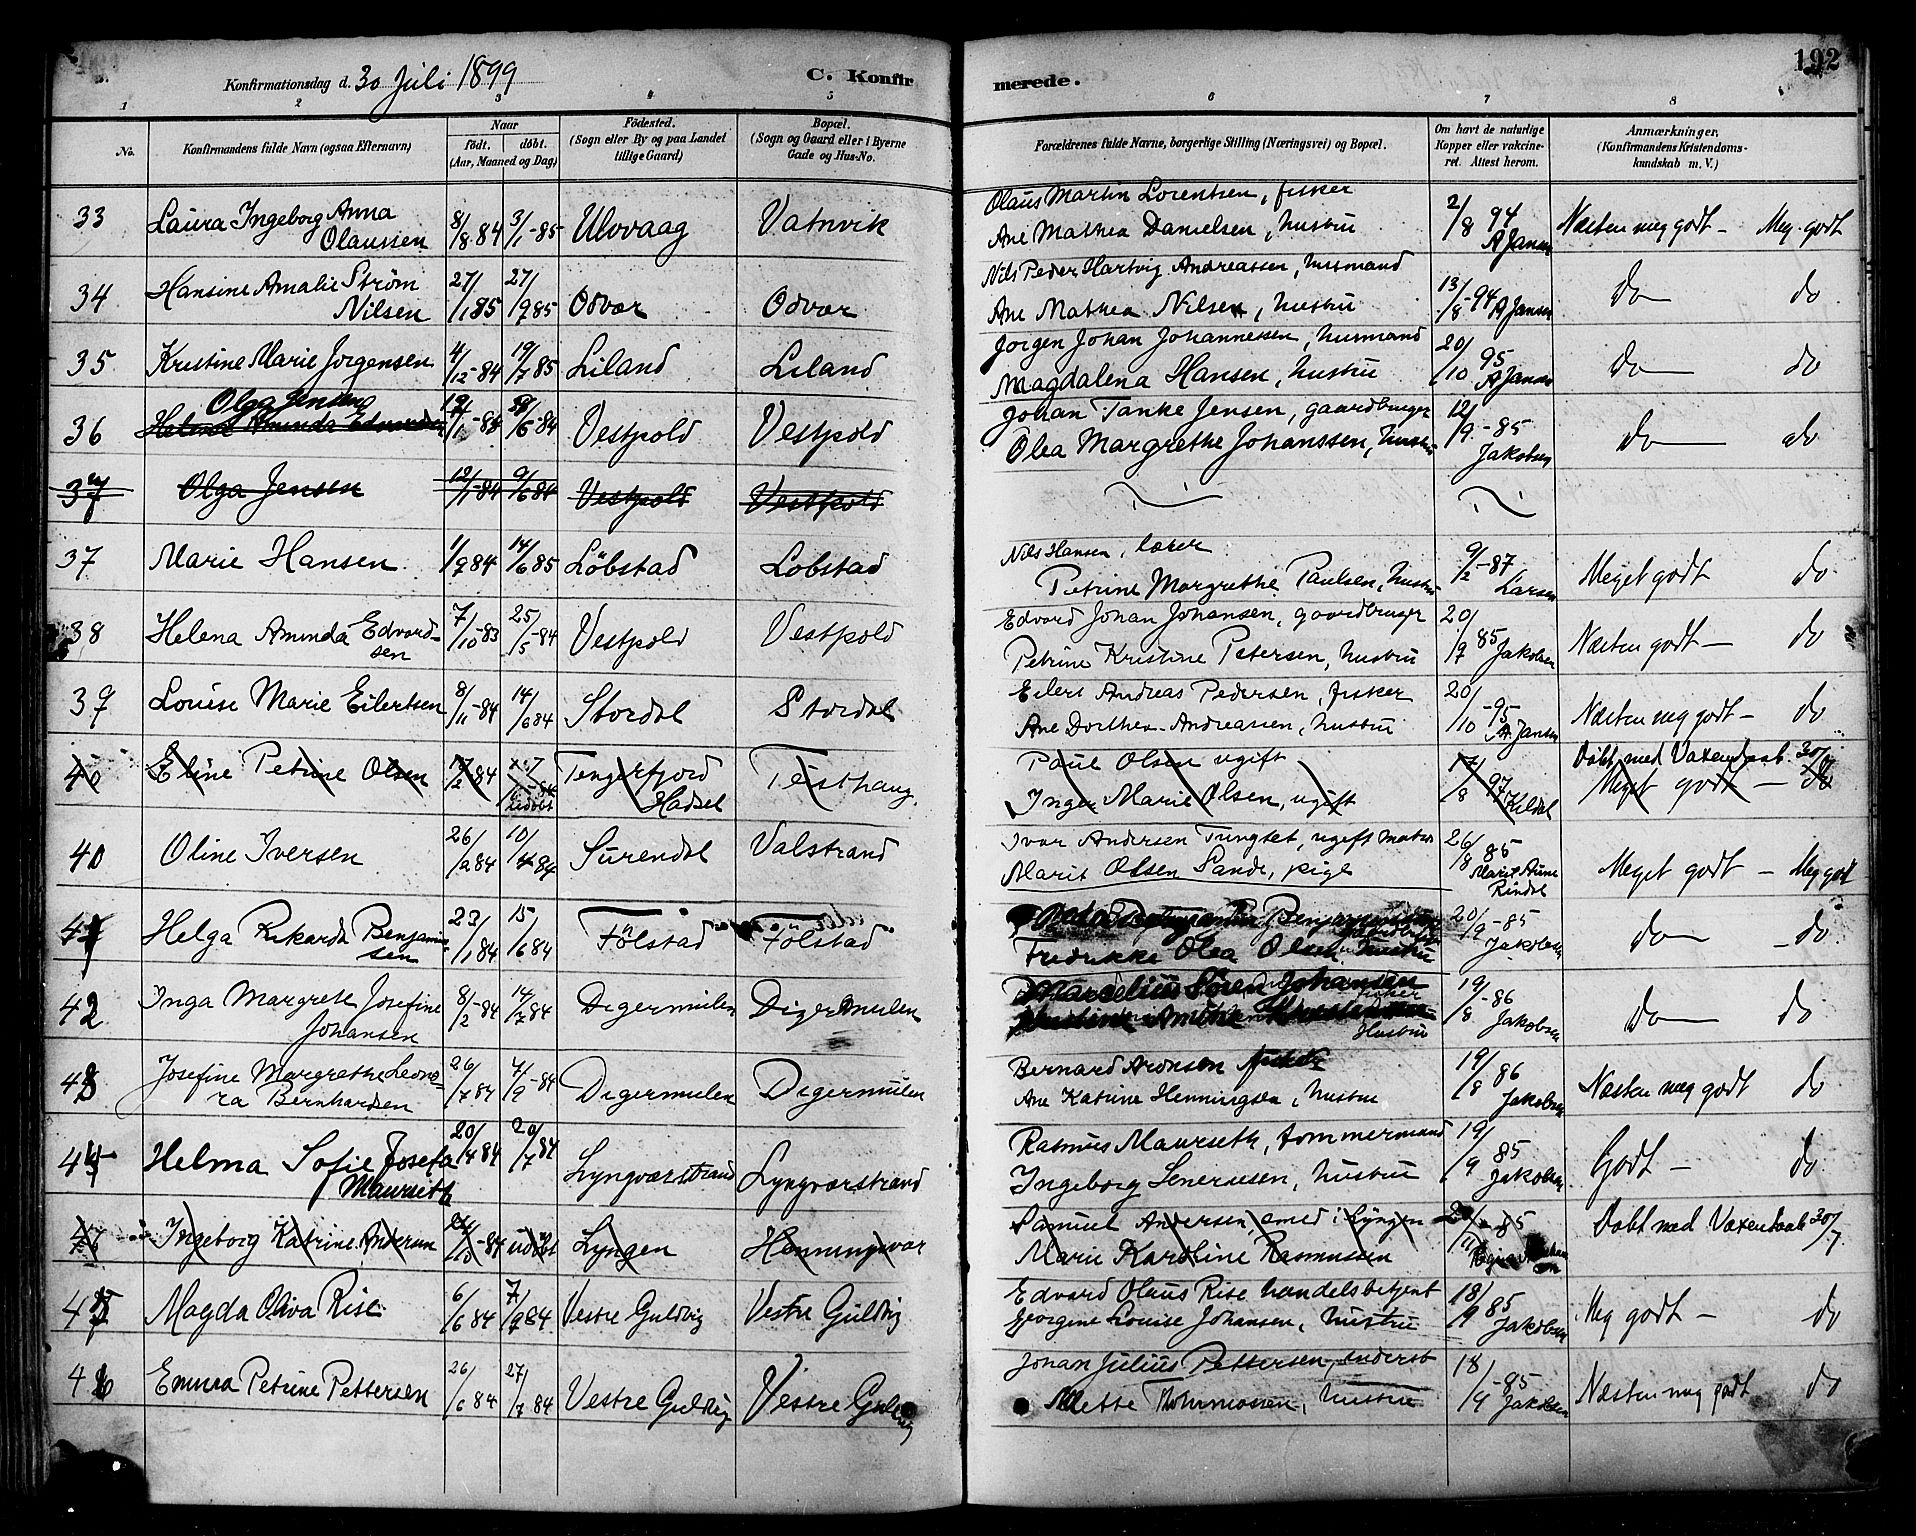 Konfirmationsdag d. 30 Juli 1899
C. Konfirmerede.
192
1 2 3 4 5 6 7 8
No.
Konfirmandens fulde Navn (ogsaa Efternavn)
Naar
født. døbt.
(Aar, Maaned og Dag)
Fødested.
(Sogn eller By og paa Landet
tillige Gaard)
Bopæl.
(Sogn og Gaard eller i Byerne
Gade og Hus-No.
Forældrenes fulde Navne, borgerlige Stilling (Næringsvei) og Bopæl.
Om havt de naturlige
Kopper eller vakcine-
ret. Attest herom.
Anmærkninger.
(Konfirmandens Kristendoms-
kundskab m. V.)
33 Laura Ingeborg Anna 8/8 84 3/1-85 Ulvvaag Vatnvik Olaus Martin Lorentsen, fisker 2/8 94 Næsten meg godt - Meg. godt
Olaussen Ane Mathea Danielsen, hustru A Jansen
34 Hansine Amalie Strøm 27/1 85 27/9 85 Odvær Odvær Nils Peder Hartvig Andreassen, husmand 13/8-94 do do
Nilsen Ane Mathea Nilsen, hustru A Jansen
35 Kristine Marie Jørgensen 4/12-84 19/7 85 Liland Liland Jørgen Johan Johannessen, husmand 20/10 95 do do
Magdalena Hansen, hustru A Jansen
Olga Jensen
36 Helena Aminda Edvardsen Vestpold Vestpold Johan Tanke Jensen, gaardbruger 12/9-85 do do
Olea Margrethe Johanssen, hustru Jakobsen
37 Olga Jensen 12/1-84 9/6 84 Vestpold Vestpold
37 Marie Hansen 1/9 84 14/6 85 Løbstad Løbstad Nils Hansen, lærer 9/2-87 Meget godt do
Petrine Margrethe Paulsen, hustru Larsen
38 Helena Aminda Edvard- 7/10-83 25/5-84 Vestpold Vestpold Edvard Johan Johansen, gaardbruger 20/9 85 Næsten godt - do
sen Petrine Kristine Petersen, hustru Jakobsen
39 Louise Marie Eilertsen 8/11-84 14/6 84 Stordal Stordal Eilert Andreas Pedersen, fisker 20/10-95 Næsten meg godt - do
Ane Dorthea Andreassen, hustru A. Jansen
40 Eline Petrine Olsen Tengelfjord Paul Olsen ugift 17/8 97 Døbt med Vaxendaab 30/7
udøbt Hadsel Inger Marie Olsen, ugift Kildal Meget godt - do
40 Oline Iversen 26/2 84 10/4 84 Surendal Valstrand Ivar Andersen Tungtet, ugift 26/8 85 Meget godt - Meg godt
Marit Olsen Sande, pige Rindal
41 Helga Rikarda Benjamin- 23/1 84 15/6 84 Følstad Følstad 20/9-85 do do
sen Fredrikke Olea Olsen hustru Jakobsen
42 Inga Margrete Josefine 8/2-84 14/7 84 Digermulen Digermulen Marcelius Søren Johansen 19/8-86 do do
Johansen fisker Hustru Jakobsen
43 Josefine Margrethe Leono- 26/7 84 4/9-84 Digermulen Digermulen Bernard Aronsen fisker 19/8 86 Næsten meg godt do
ra Bernhardsen Ane Katrine Henningsen, hustru Jakobsen
44 Helma Sofie Josefa 20/4 84 20/7 84 Lyngværstrand Lyngværstrand Rasmus Maurseth, tømmermand 19/9 85 Godt - do
Maurseth Ingeborg Senerusen, hustru Jakobsen
Ingeborg Katrine Andersen udøbt Lyngen Henningsvær Samuel Andersen emed i Lyngen Døbt med Vaxendaab 30/7
Marie Karoline Rasmussen
45 Magda Oliva Rise 6/6 84 7/9 84 Vestre Guldvig Vestre Guldvig Edvard Olaus Rise handelsbetjent 18/9 85 Meg godt - do
Georgine Louise Johansen, hustru Jakobsen
46 Emma Petrine Pettersen 26/6 84 27/7 84 Vestre Guldvig Vestre Guldvig Johan Julius Pettersen, inderst 18/9-85 Næsten meg godt do
Mette Thommassen, hustru Jakobsen